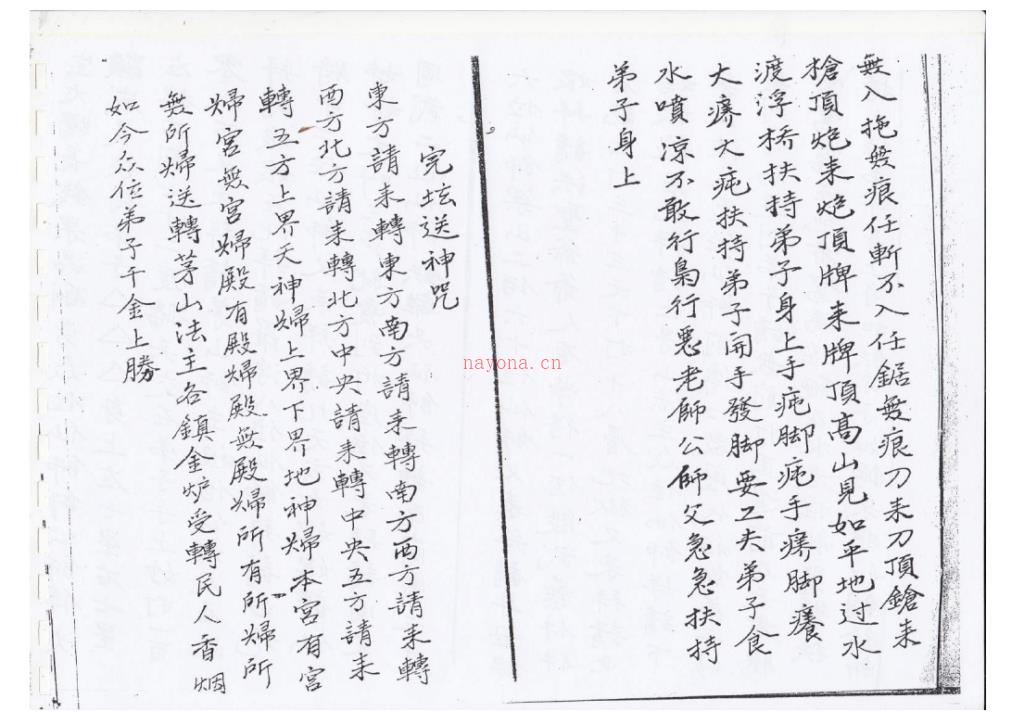 無入拖無痕任斬不入任鋸無痕刀來刀頂鎗來
槍頂炮來炮頂牌來牌頂高山見如平地过水
渡浮桥扶持弟子身上手疤脚疤手痹脚癢
大痹大疤扶持弟子開手發脚要工夫弟子食
水噴凉不敢行梟行惡老師公師父急急扶持
弟子身上
完坛送神咒
東方請来轉東方南方請耒轉南方西方請耒轉
西方北方請耒轉北方中央請耒轉中央五方請耒
轉五方上界天神歸上界下界地神歸本宮有宮
歸宮無宮歸殿有殿歸殿無殿歸所有所歸所
無所歸送轉茅山法主各鎮金炉受轉民人香烟
如今众位弟子千金上勝
nayona.cn